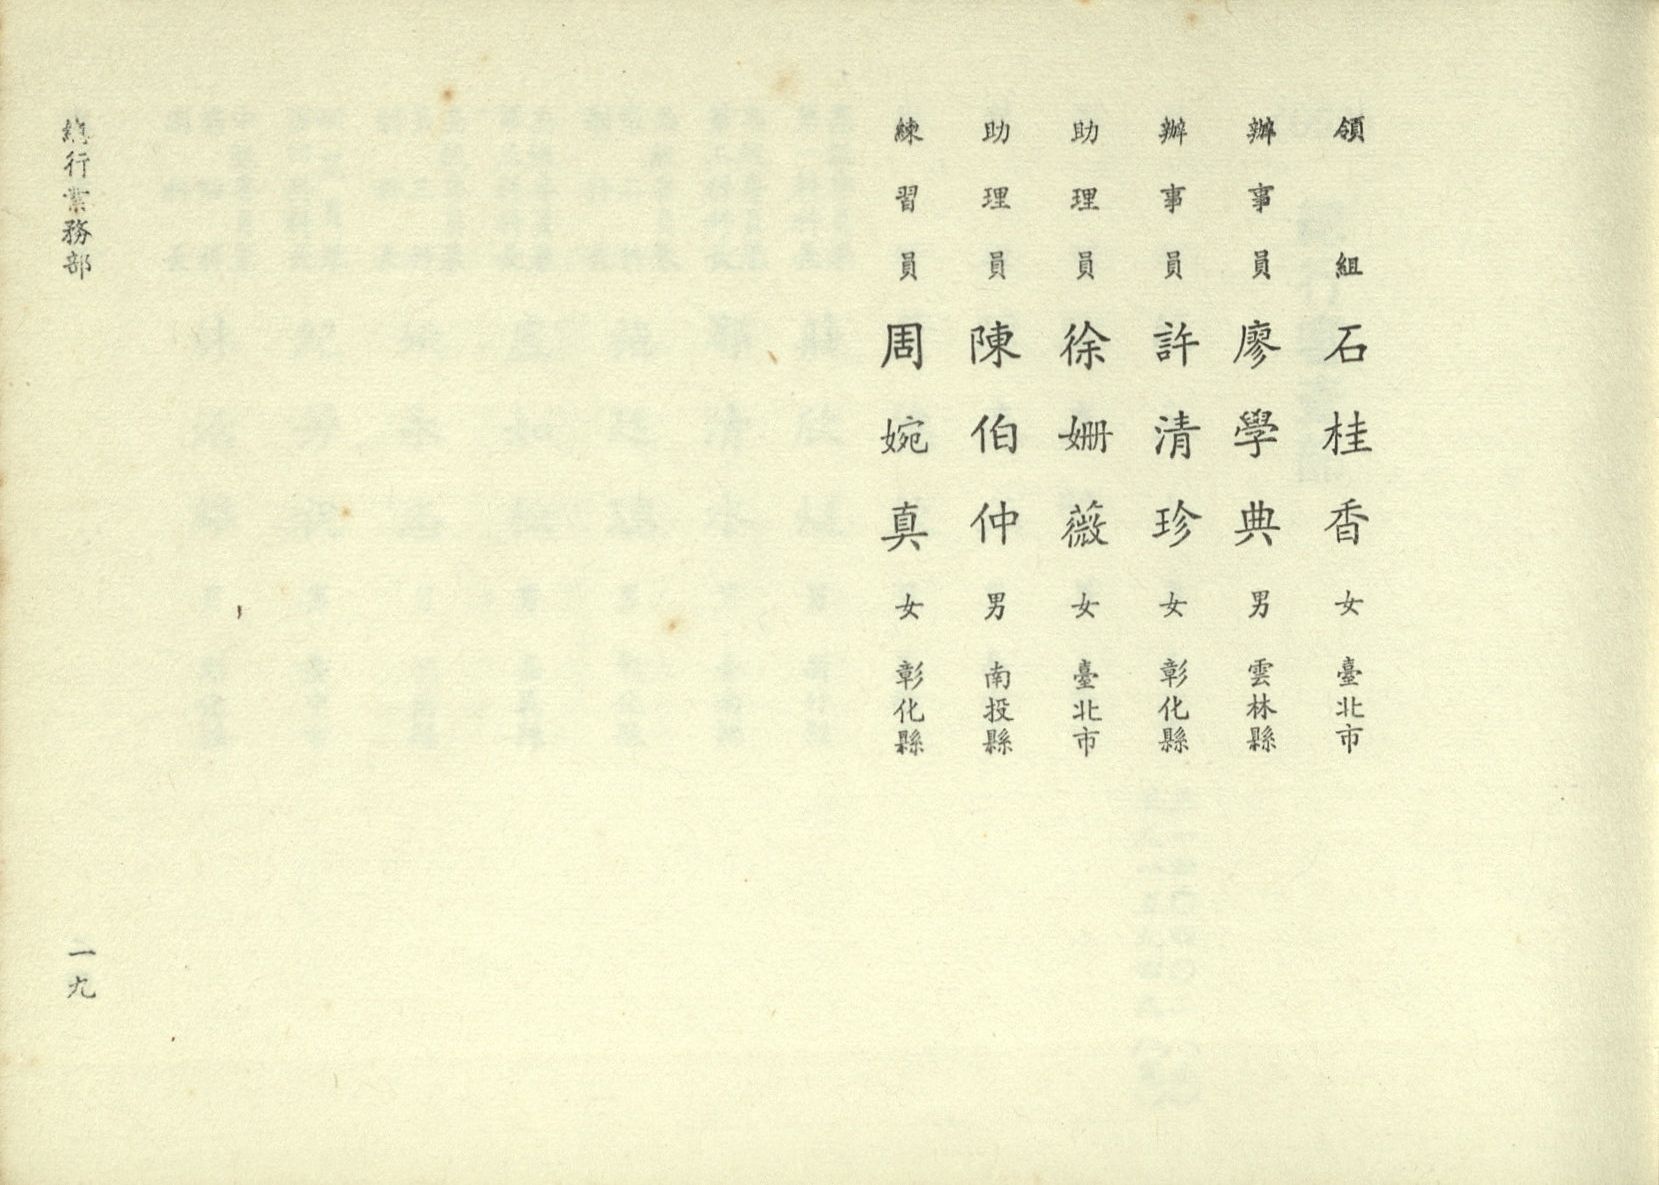 領組石桂香女臺北市
辦事員廖學典男雲林縣
辦事員許清珍女彰化縣
助理員徐姍薇女臺北市
助理員陳伯仲男南投縣
練習員周婉真女彰化縣
總行業務部
一九